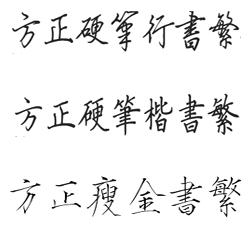 方正硬筆行書繁
方正硬筆楷書繁
方正瘦金書繁